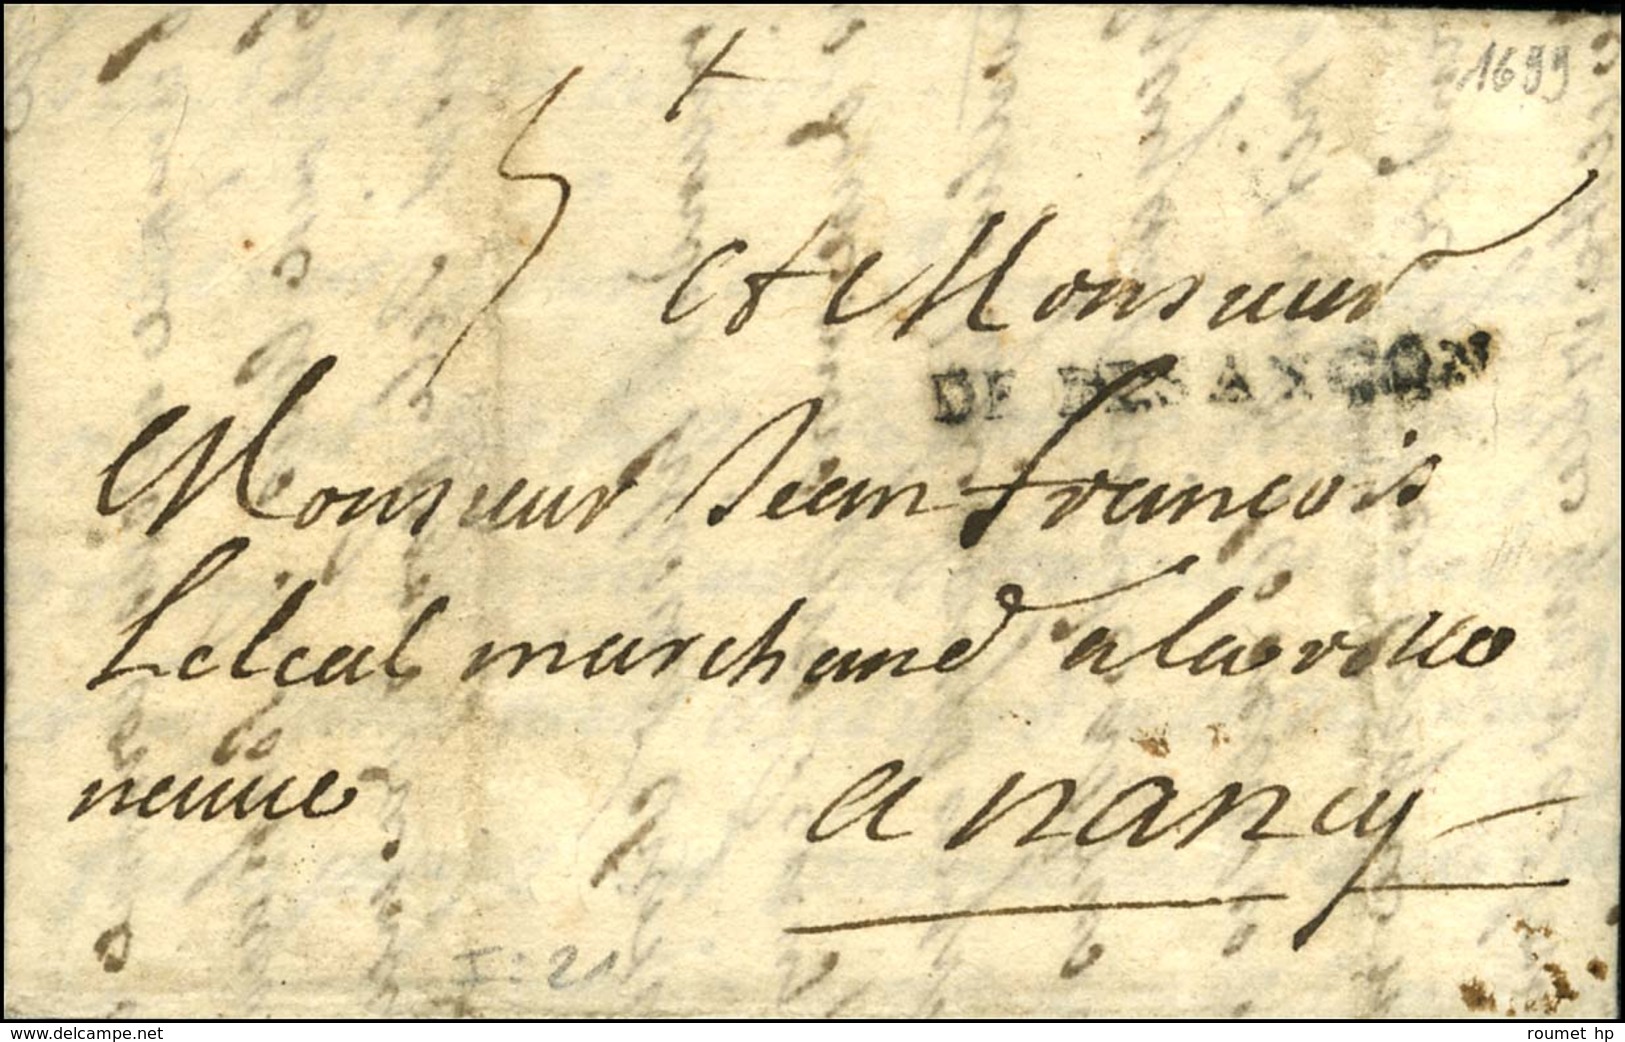 +
1699
5
A Monsieur
DE BESANCON
Monsieur Jean francois
Leleal marchand a la ville
neuue
a nancy
I: 21
www.delcampe.net
roumet hp